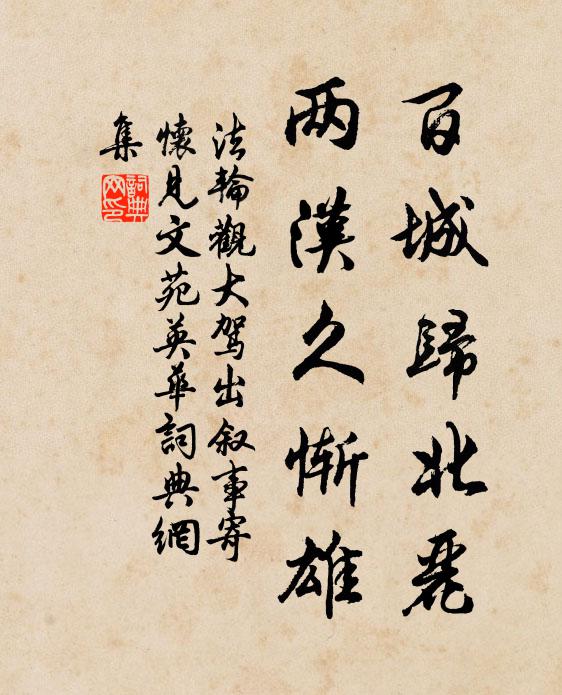 百城歸北麗
两漢久慚雄
法輪觀大駕出叙事寄
懷見文苑英華詞典網
集
詞典
网印